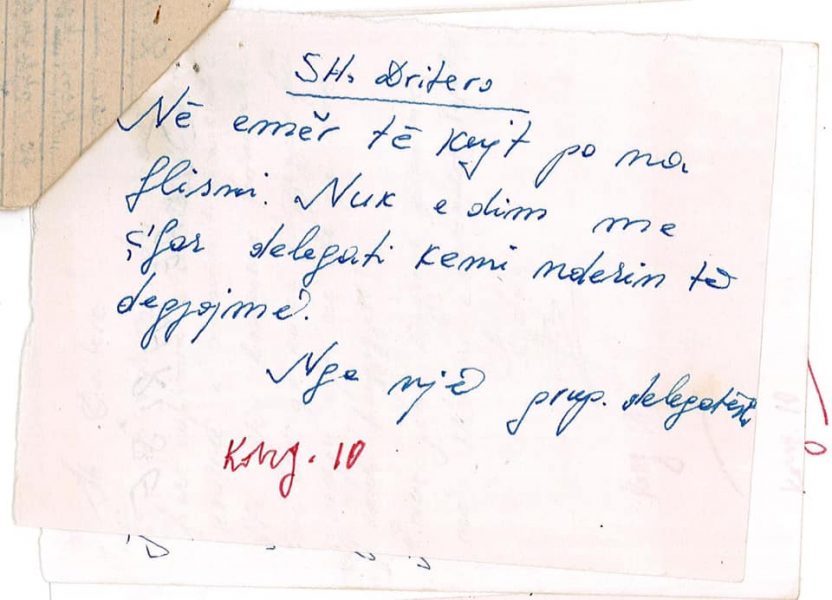 SH. Dritero
Në emër të kujt po na
flisni. Nuk e dim me
ç'far delegati kemi nderin të
degjojmë.
Nga një grup. delegatësh
Kong. 10